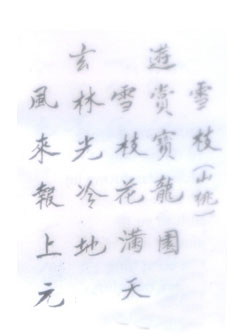 雪枝(山桃)
遊賞寶龍園
雪枝花滿天
玄林光冷地
風來報上元